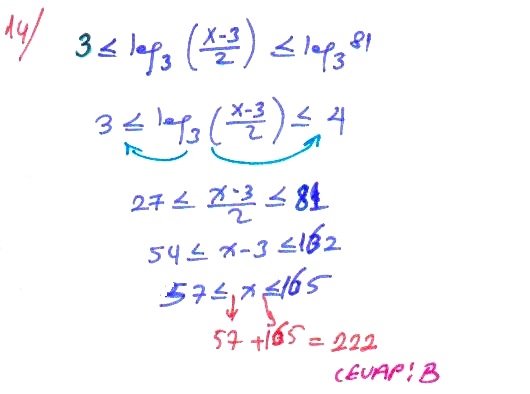 14/ 3 ≤ log₃ (x-3/2) ≤ log₃ 81
3 ≤ log₃ (x-3/2) ≤ 4
27 ≤ x-3/2 ≤ 81
54 ≤ x-3 ≤ 162
57 ≤ x ≤ 165
57 + 165 = 222
CEVAP: B